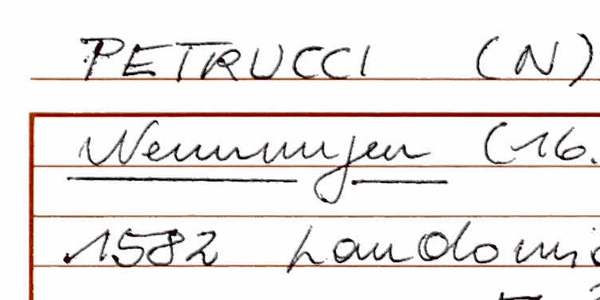 PETRUCCI (N)
Nennungen (16.
1582 Landomi